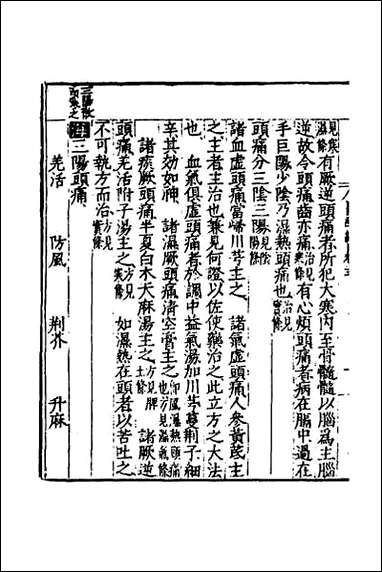 見寒濕條 有厥逆頭痛者所犯大寒內至骨髓髓以腦爲主腦
逆故令頭痛齒亦痛治見寒條 有心煩頭痛者病在膈中過在
手巨陽少陰乃濕熱頭痛也治見實條
頭痛分三陰三陽
諸血虛頭痛當歸川芎主之 諸氣虛頭痛人參黃芪主
之主者主治也兼見何證以佐使藥治之此立方之大法
也 血氣俱虛頭痛者於調中益氣湯加川芎蔓荊子細
辛其効如神 諸濕厥頭痛清空膏主之即風濕熱頭痛也方見氣條
諸痰厥頭痛半夏白木天麻湯主之方見脾土條 諸厥逆
頭痛羌活附子湯主之方見寒條 如濕熱在頭者以苦吐之
不可執方而治方見實條
三陽頭痛
羌活 防風 荊芥 升麻